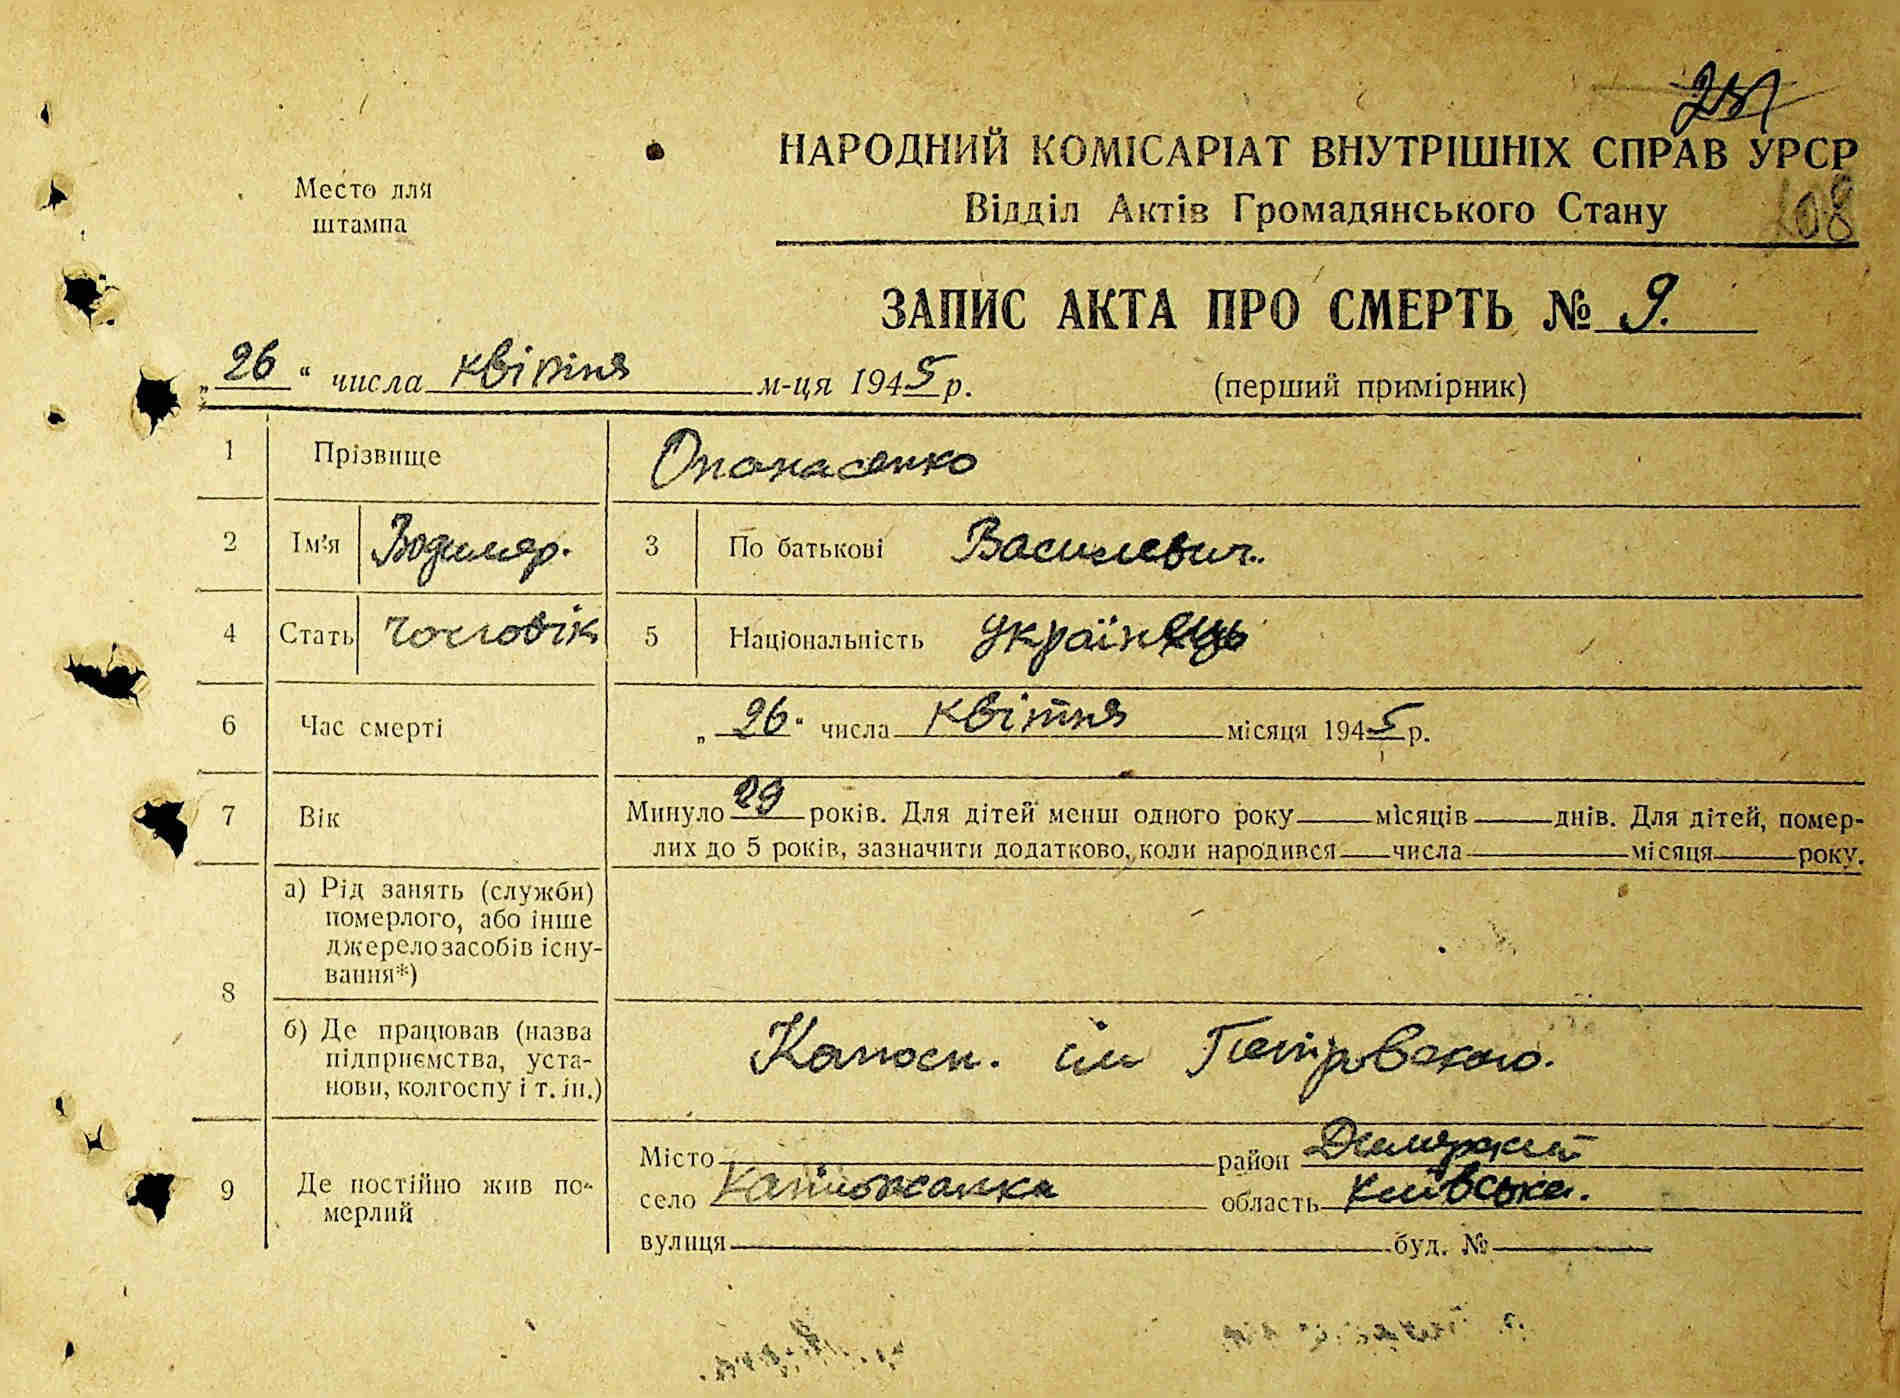 251
НАРОДНИЙ КОМІСАРІАТ ВНУТРІШНІХ СПРАВ УРСР
Место для
штампа
Відділ Актів Громадянського Стану
108
ЗАПИС АКТА ПРО СМЕРТЬ № 9.
„26“ числа квітня м-ця 1945 р.
(перший примірник)
1 Прізвище Опанасенко
2 Ім'я Водимер. 3 По батькові Василевич.
4 Стать чоловік 5 Національність українець
6 Час смерті „26“ числа квітня місяця 1945 р.
7 Вік Минуло 29 років. Для дітей менш одного року місяців днів. Для дітей, помер-
лих до 5 років, зазначити додатково, коли народився числа місяця року.
8 а) Рід занять (служби)
померлого, або інше
джерело засобів існу-
вання*)
б) Де працював (назва
підприємства, уста-
нови, колгоспу і т. ін.)
ім Петровского.
9 Де постійно жив по-
мерлий
Місто район Димерский
село Катюжанка область Київська.
вулиця буд. №